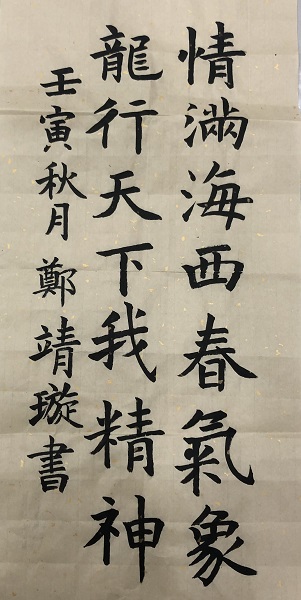 情滿海西春氣象
龍行天下我精神
壬寅秋月鄭靖璇書